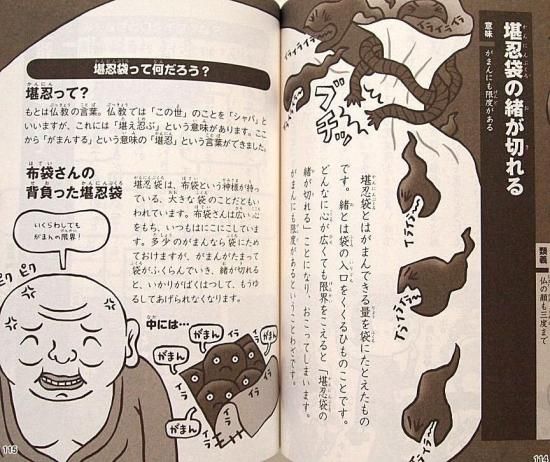 堪忍袋の緒が切れる
かんにんぶくろ
意味
がまんにも限度がある
類義
仏の顔も三度まで
イライライラ
イライライラ
ブチッ
イライラ
イライラ
イライラ
堪忍袋とはがまんできる量を袋にたとえたもの
です。緒とは袋の入口をくくるひものことです。
どんなに心が広くても限界をこえると「堪忍袋の
緒が切れる」ことになり、おこってしまいます。
がまんにも限度があるということわざです。
114
堪忍袋って何だろう？
堪忍って？
もとは仏教の言葉。仏教では「この世」のことを「シャバ」と
いいますが、これには「堪え忍ぶ」という意味があります。ここ
から「がまんする」という意味の「堪忍」という言葉ができました。
布袋さんの
背負った堪忍袋
堪忍袋は、布袋という神様が持っ
ている、大きな袋のことだともい
われています。布袋さんは広い心
をもち、いつもにこにこしていま
す。多少のがまんなら袋にため
ておけますが、がまんがたまって
袋がふくらんでいき、緒が切れる
と、いかりがばくはつして、もうゆ
るしてあげられなくなります。
いくらわしでも
がまんの限界！
ピク
ピク
中には…
がまん
がまん
がまん
イラ
イラ
イラ
イラ
115